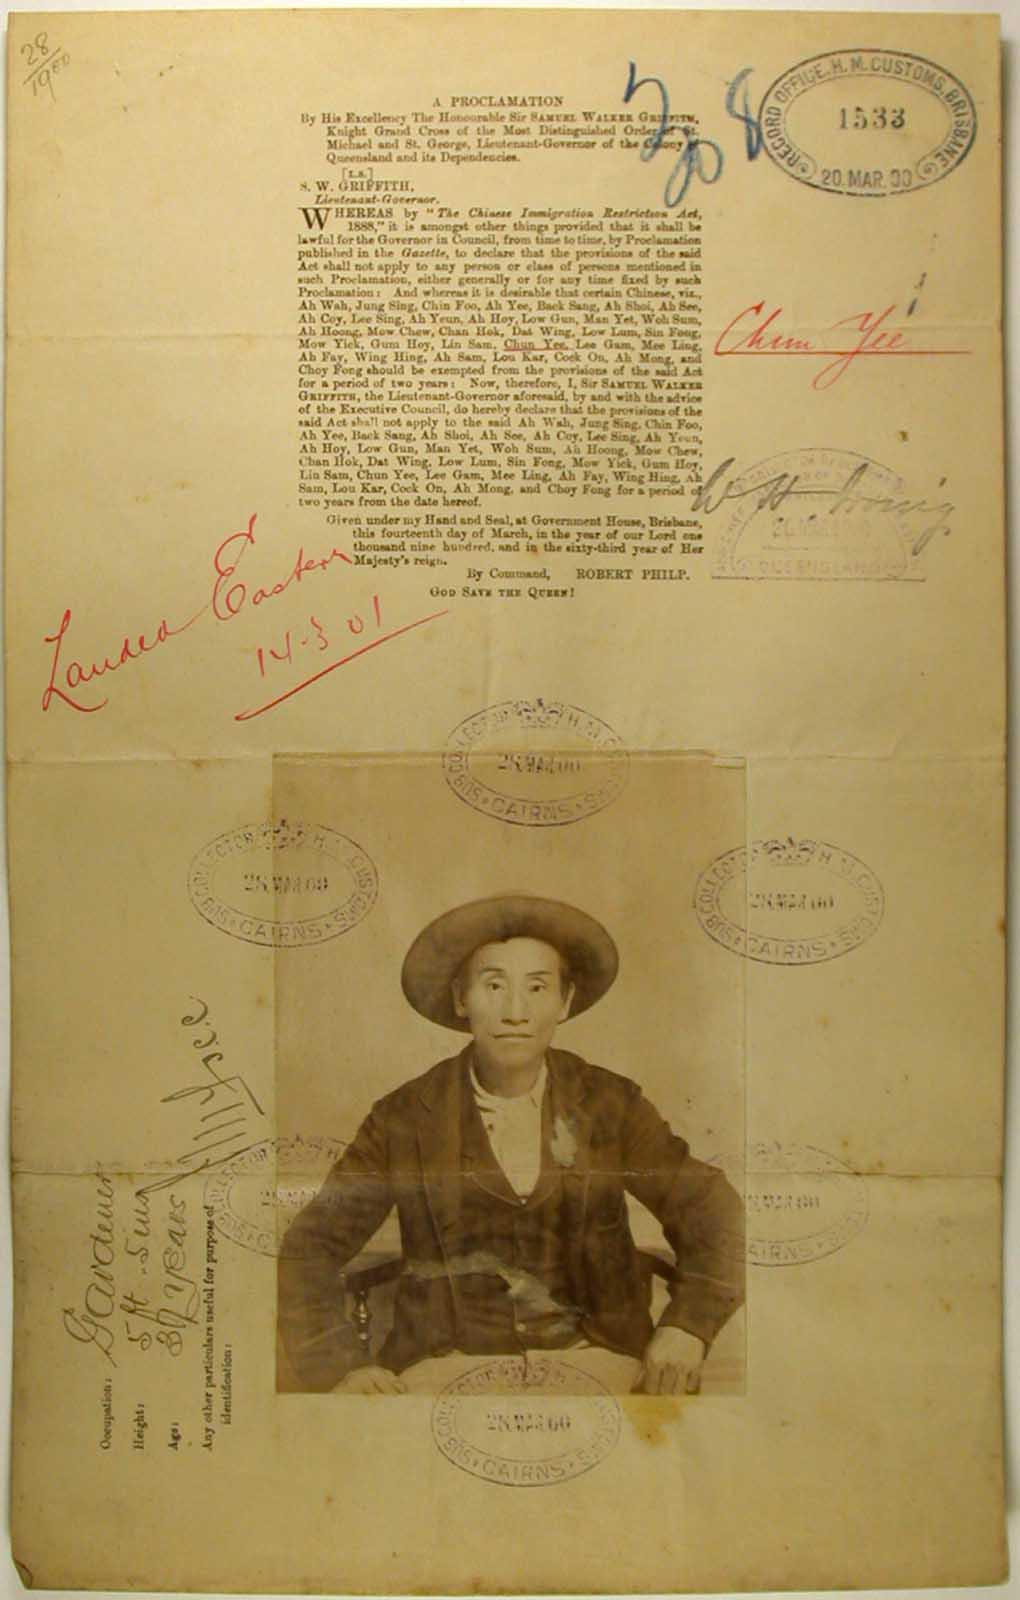 28
1900
208
RECORD OFFICE. H. M. CUSTOMS, BRISBANE
1533
20. MAR. 00
A PROCLAMATION
By His Excellency The Honourable Sir SAMUEL WALKER GRIFFITH,
Knight Grand Cross of the Most Distinguished Order of St.
Michael and St. George, Lieutenant-Governor of the Colony of
Queensland and its Dependencies.
[L.S.]
S. W. GRIFFITH,
Lieutenant-Governor.
WHEREAS by "The Chinese Immigration Restriction Act,
1888," it is amongst other things provided that it shall be
lawful for the Governor in Council, from time to time, by Proclamation
published in the Gazette, to declare that the provisions of the said
Act shall not apply to any person or class of persons mentioned in
such Proclamation, either generally or for any time fixed by such
Proclamation: And whereas it is desirable that certain Chinese, viz.,
Ah Wah, Jung Sing, Chin Foo, Ah Yee, Back Sang, Ah Shoi, Ah See,
Ah Coy, Lee Sing, Ah Yeun, Ah Hoy, Low Gun, Man Yet, Woh Sum,
Ah Hoong, Mow Chew, Chan Hok, Dat Wing, Low Lum, Sin Fong,
Mow Yick, Gum Hoy, Lin Sam, Chun Yee, Lee Gam, Mee Ling,
Ah Fay, Wing Hing, Ah Sam, Lou Kar, Cock On, Ah Mong, and
Choy Fong should be exempted from the provisions of the said Act
for a period of two years: Now, therefore, I, Sir SAMUEL WALKER
GRIFFITH, the Lieutenant-Governor aforesaid, by and with the advice
of the Executive Council, do hereby declare that the provisions of the
said Act shall not apply to the said Ah Wah, Jung Sing, Chin Foo,
Ah Yee, Back Sang, Ah Shoi, Ah See, Ah Coy, Lee Sing, Ah Yeun,
Ah Hoy, Low Gun, Man Yet, Woh Sum, Ah Hoong, Mow Chew,
Chan Hok, Dat Wing, Low Lum, Sin Fong, Mow Yick, Gum Hoy,
Lin Sam, Chun Yee, Lee Gam, Mee Ling, Ah Fay, Wing Hing, Ah
Sam, Lou Kar, Cock On, Ah Mong, and Choy Fong for a period of
two years from the date hereof.
Given under my Hand and Seal, at Government House, Brisbane,
this fourteenth day of March, in the year of our Lord one
thousand nine hundred, and in the sixty-third year of Her
Majesty's reign.
By Command, ROBERT PHILP.
GOD SAVE THE QUEEN!
Chun Yee
W H
QUEENSLAND
Landed Eastern
14-3 01
COLLECTOR H. M. CUSTOMS
28 MAR 00
CAIRNS
COLLECTOR H. M. CUSTOMS
28 MAR 00
CAIRNS
COLLECTOR H. M. CUSTOMS
28 MAR 00
CAIRNS
COLLECTOR H
28 MAR 00
28 MAR 00
CAIRNS
COLLECTOR H. M. CUSTOMS
28 MAR 00
CAIRNS
Occupation: Gardener
Height: 5 ft. 5 ins
Age: years
Any other particulars useful for purpose of
identification: